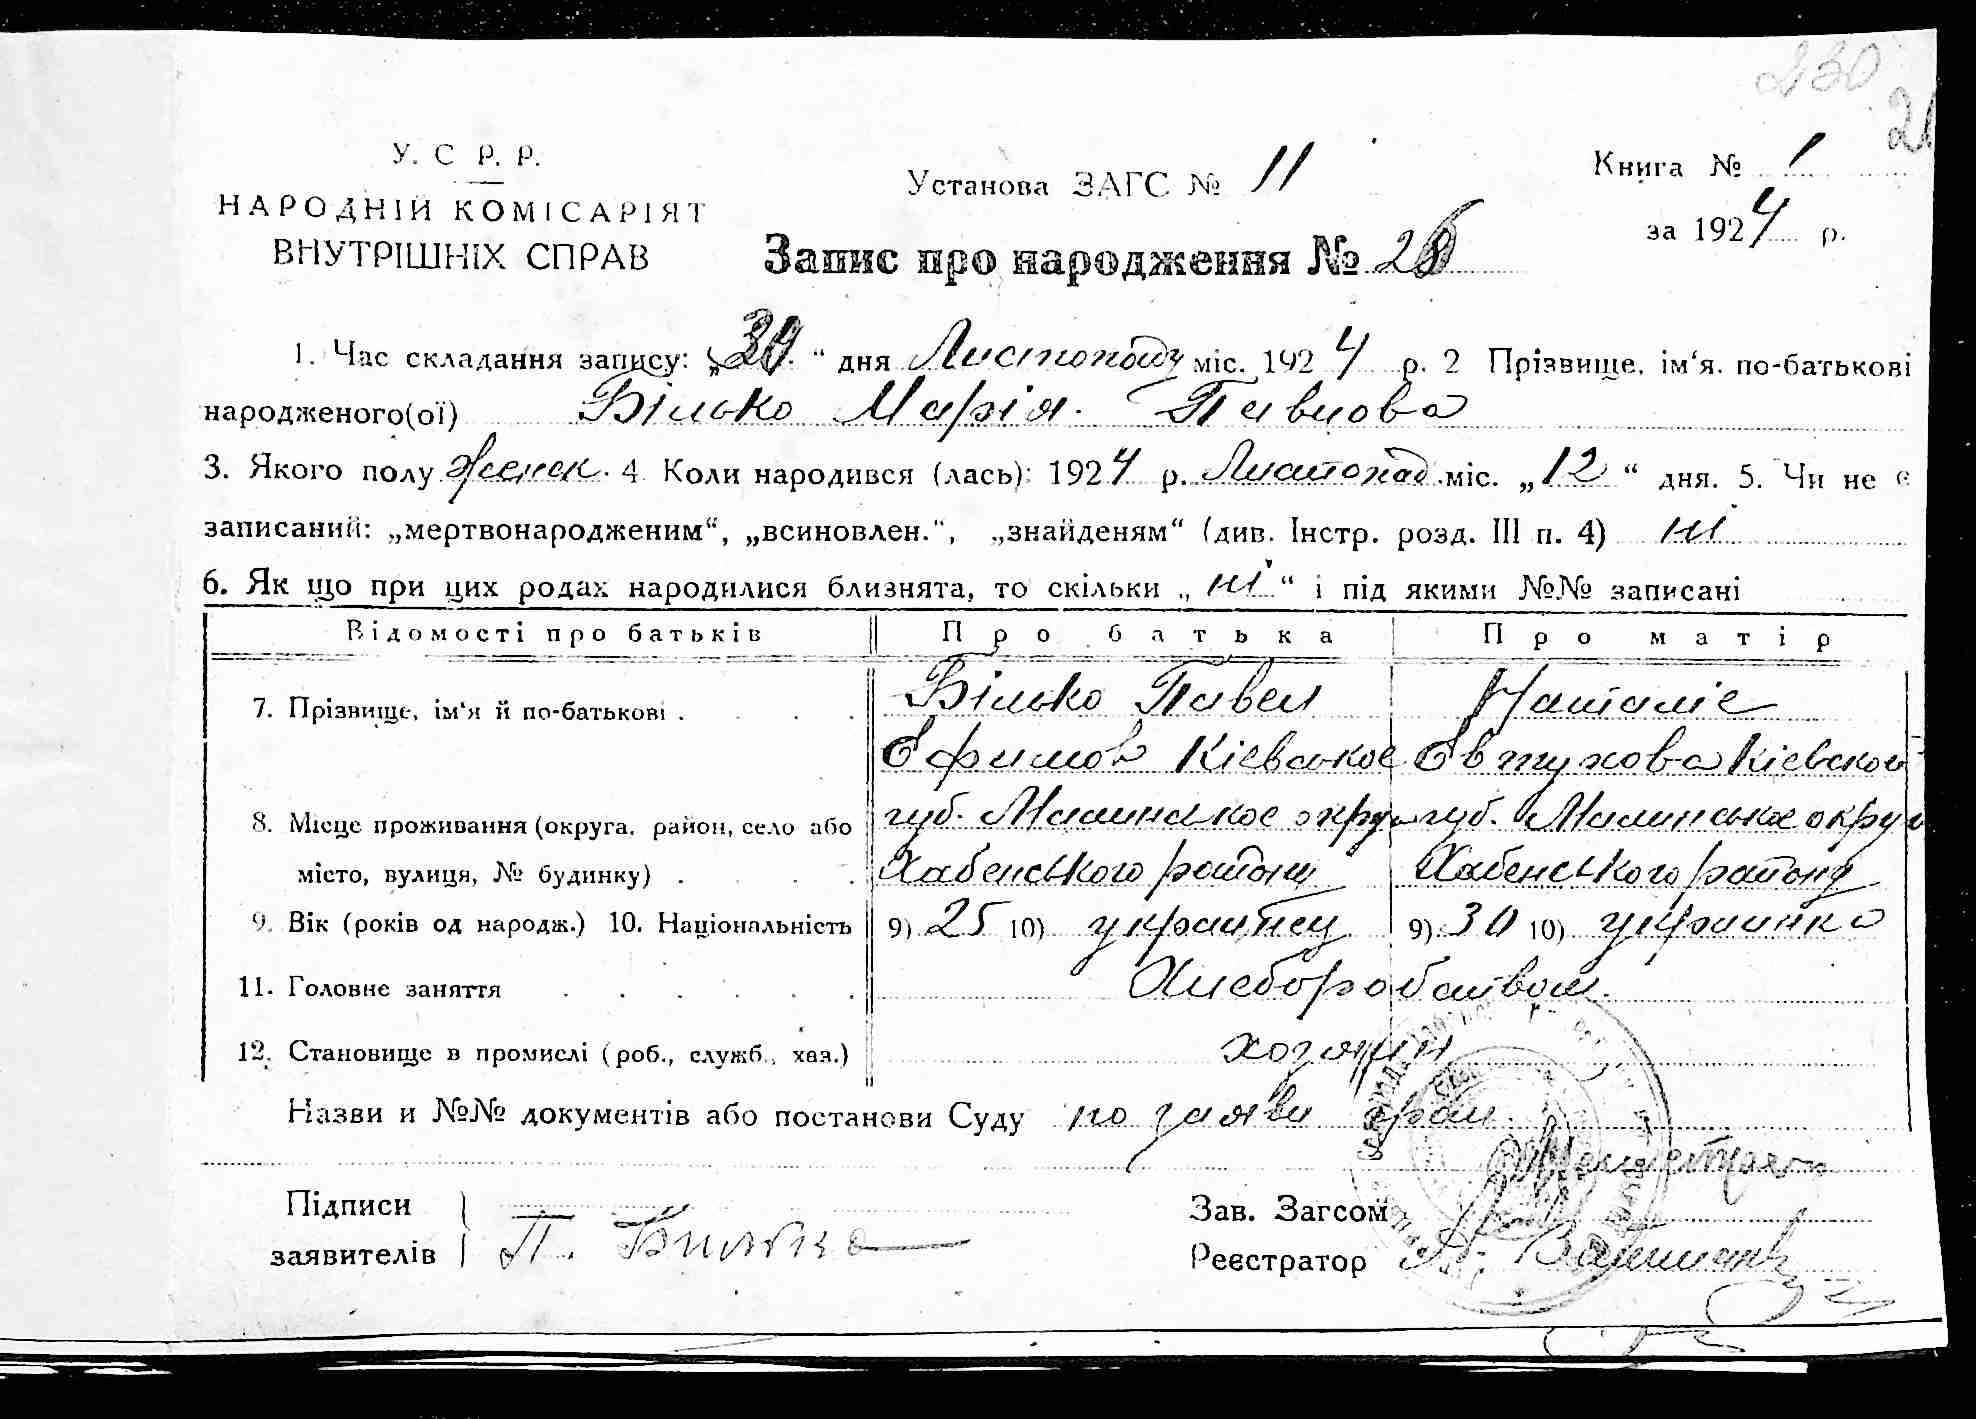 230
У. С Р. Р.
НАРОДНІЙ КОМІСАРІЯТ
ВНУТРІШНІХ СПРАВ
Установа ЗАГС № 11
Книга № 1
за 1924 р.
Запис про народження № 26
1. Час складання запису: „30“ дня Листопаду міс. 1924 р. 2 Прізвище, ім‘я, по-батькові
народженого(ої) Білько Марія Павлова
3. Якого полу женск. 4 Коли народився (лась): 1924 р. Листопад міс. „12“ дня. 5. Чи не є
записаний: „мертвонародженим“, „всиновлен.“, „знайденям“ (див. Інстр. розд. III п. 4) ні
6. Як що при цих родах народилися близнята, то скільки „ні“ і під якими №№ записані
Відомості про батьків Про батька Про матір
7. Прізвище, ім‘я й по-батькові . Білько Павел Наталіе
Ефимов Кіевськое Евтухова Кіевской
8. Місце проживання (округа, район, село або губ. Малинськое округ губ. Малинськое округ
місто, вулиця, № будинку) . Хабенського району Хабенського району
9. Вік (років од народж.) 10. Національність 9) 25 10) украінец 9) 30 10) украинка
11. Головне заняття Хлеборобством.
12. Становище в промислі (роб., служб., хаз.) хозяїн
Назви и №№ документів або постанови Суду по заяви
Підписи
заявителів П. Билько
Зав. Загсом
Реєстратор